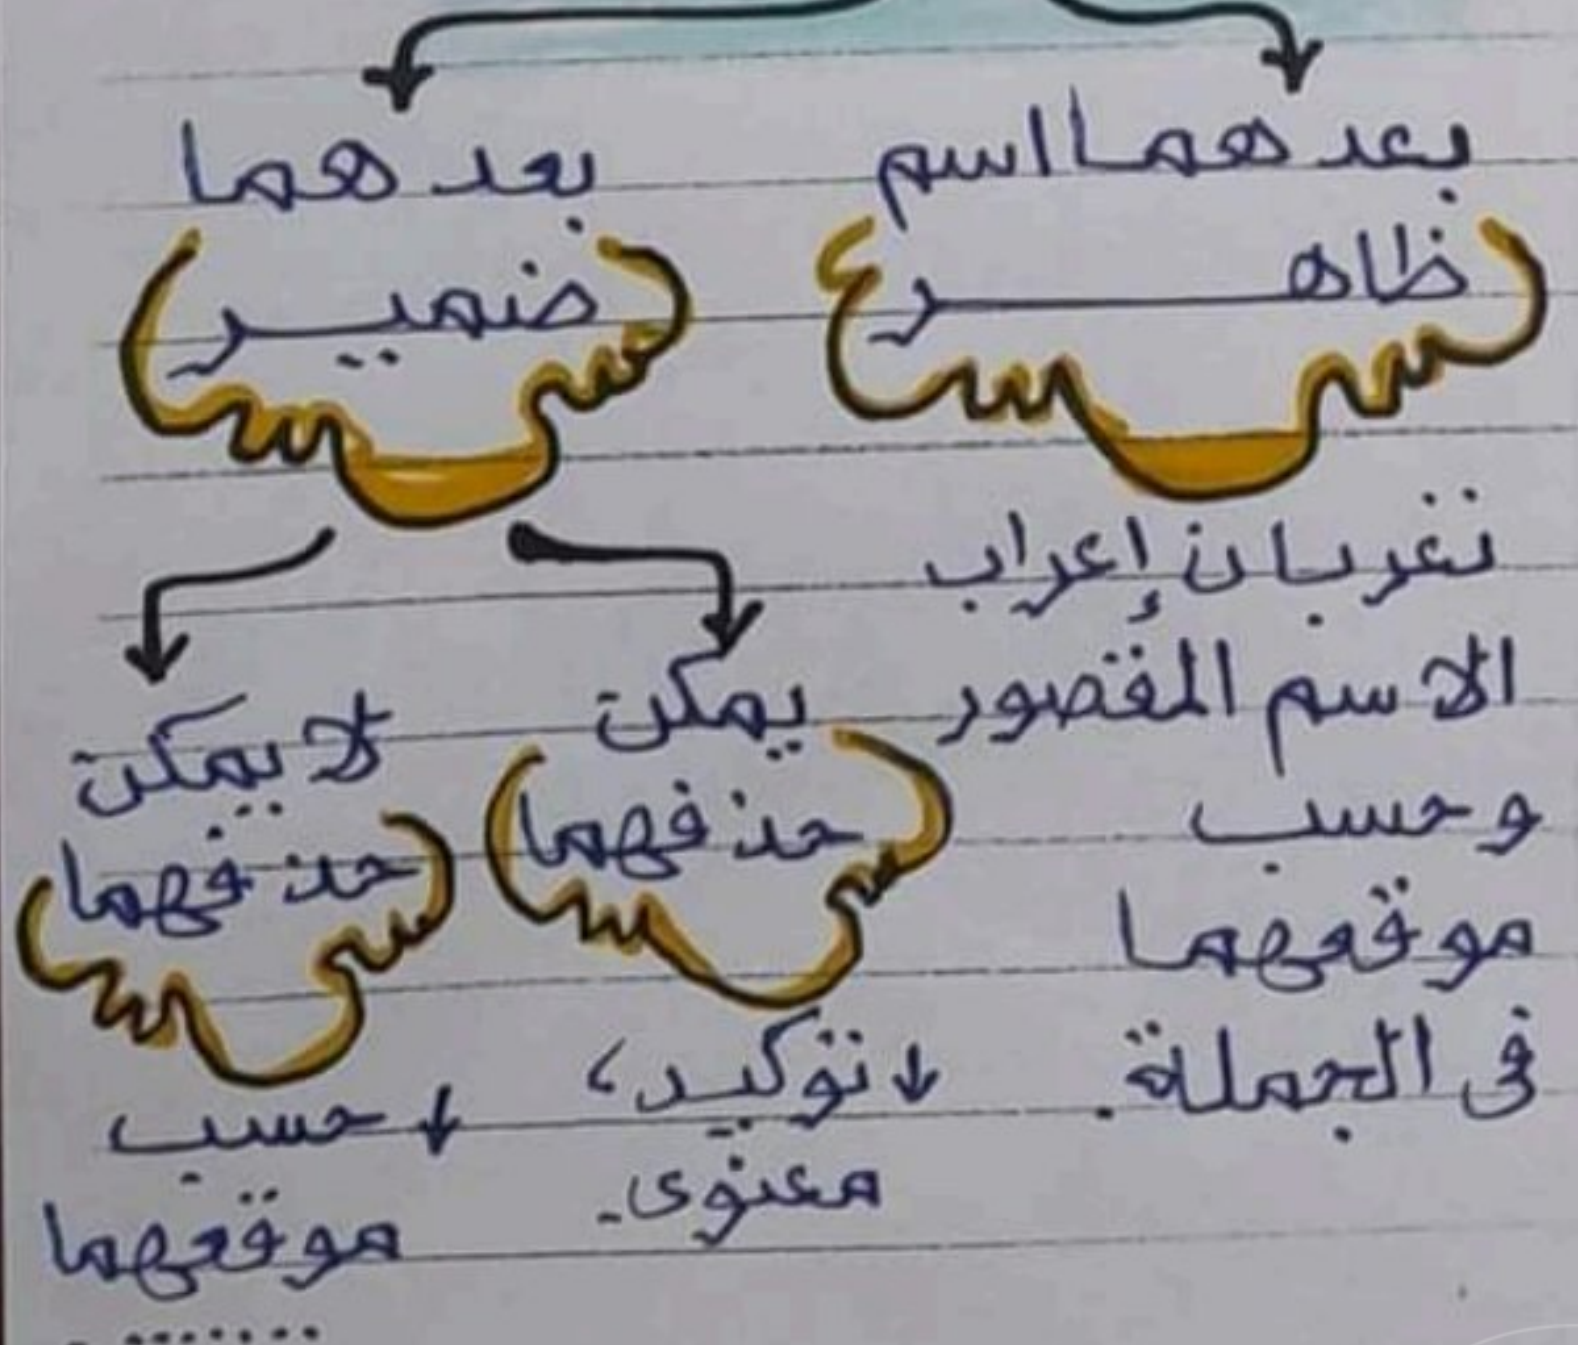 بعدهما اسم
ظاهر
تعربان إعراب
الاسم المقصور
وحسب
موقعهما
فى الجملة.
بعدهما
ضمير
يمكن
حذفهما
توكيد،
معنوى.
لا يمكن
حذفهما
حسب
موقعهما